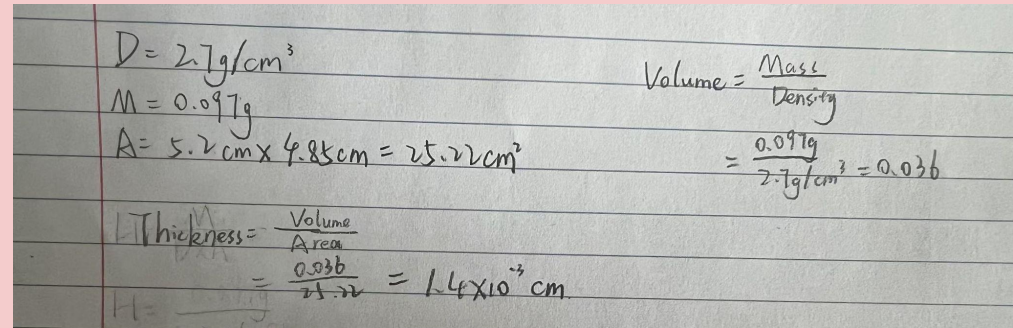 D = 2.7g/cm³
M = 0.097g
A = 5.2cm × 4.85cm = 25.22cm²
Volume = Mass / Density
= 0.097g / 2.7g/cm³ = 0.036
Thickness = Volume / Area
= 0.036 / 25.22 = 1.4×10⁻³ cm
H =